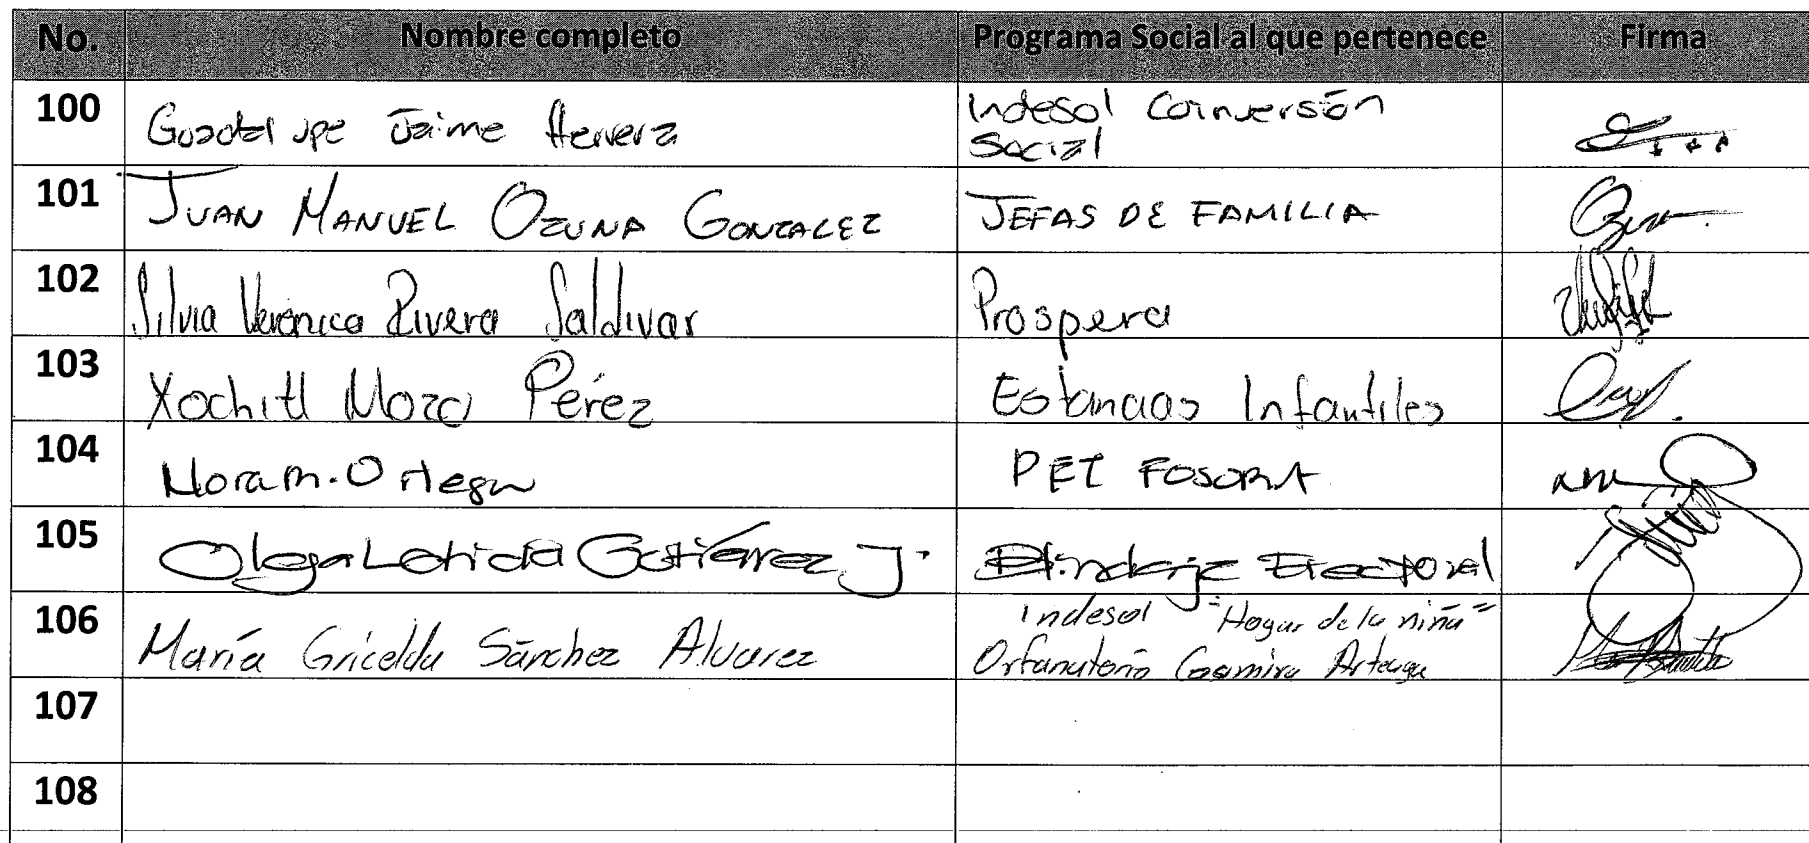 No. Nombre completo Programa Social al que pertenece Firma
100 Guadalupe Jaime Herrera Indesol Coinversión
Social
101 JUAN MANUEL OZUNA GONZALEZ JEFAS DE FAMILIA
102 Silvia Verónica Rivera Saldivar Prospera
103 Xochitl Mora Pérez Estancias Infantiles
104 Nora M. Ortega PET
105 Olga Leticia Gutiérrez J. Blindaje Electoral
106 María Gricelda Sánchez Alvarez Indesol "Hogar de la niña"
Orfanatorio Casimira Arteaga
107
108